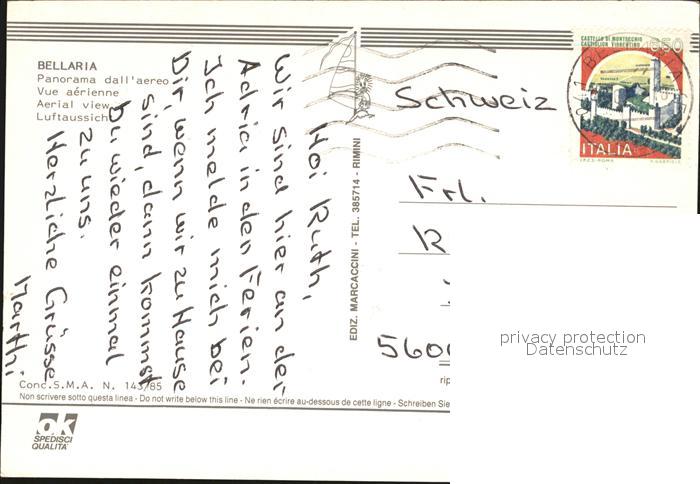 BELLARIA
Panorama dall'aereo
Vue aérienne
Aerial view
Luftaussicht
Hoi Ruth,
Wir sind hier an der
Adria in den Ferien.
Ich melde mich bei
Dir, wenn wir zu Hause
sind, dann kommst
Du wieder einmal
zu uns.
Herzliche Grüsse
Marthi
EDIZ. MARCACCINI - TEL. 385714 - RIMINI
CASTELLO DI MONTECCHIO
CASTIGLION FIORENTINO
ITALIA
I.P.Z.S.-ROMA
Schweiz
Frl.
R
560
privacy protection
Datenschutz
Conc. S.M.A. N. 143/85
rip
Non scrivere sotto questa linea - Do not write below this line - Ne rien écrire au-dessous de cette ligne - Schreiben Sie
ok
SPEDISCI
QUALITA'